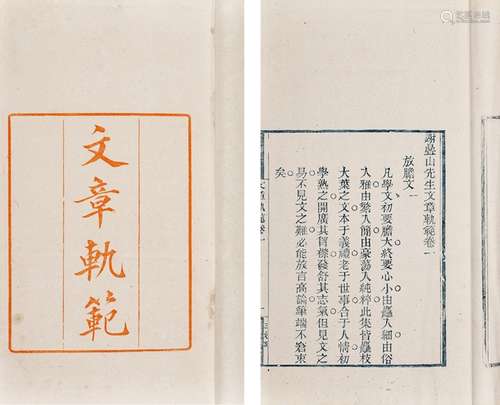 文章軌範
謝疊山先生文章軌範卷一
放膽文一
凡學文初要膽大終要心小由麤入細由俗
入雅由繁入簡由豪蕩入純粹此集皆麤枝
大葉之文本于義禮老于世事合于人情初
學熟之開廣其胸襟發舒其志氣但見文之
易不見文之難必能放言高論筆端不窘束
矣